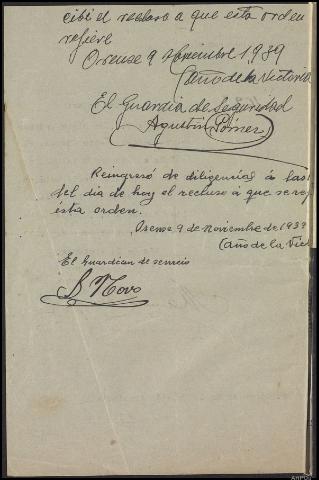 cibí el recluso a que esta orden
refiere
Orense 9 Noviembre 1939
Año de la Victoria
El Guardia de Seguridad
Agustín
Reingresó de diligencias á las
del dia de hoy el recluso á que se re
ésta orden.
Orense 9 de Noviembre de 1939
(año de la Vic
El Guardian de servicio
S. Novo